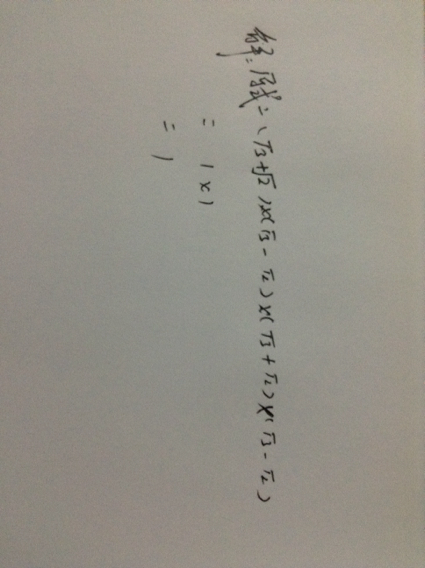 解:原式=(√3+√2)×(√3-√2)×(√3+√2)×(√3-√2)
=1×1
=1